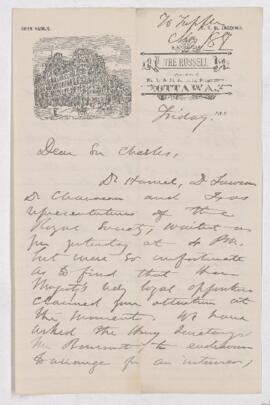 THE RUSSELL
OTTAWA,
Friday
Dear Sir Charles,
Dr Hamel, Dr
Dr and I as
representatives of the
Royal Society, waited on
you yesterday at 4 PM.
but were so unfortunate
as to find that Her
Majesty's loyal opposition
claimed your attention at
the moment. We have
asked the Secretary
Mr Bourinot to endeavour
to arrange for an interview,